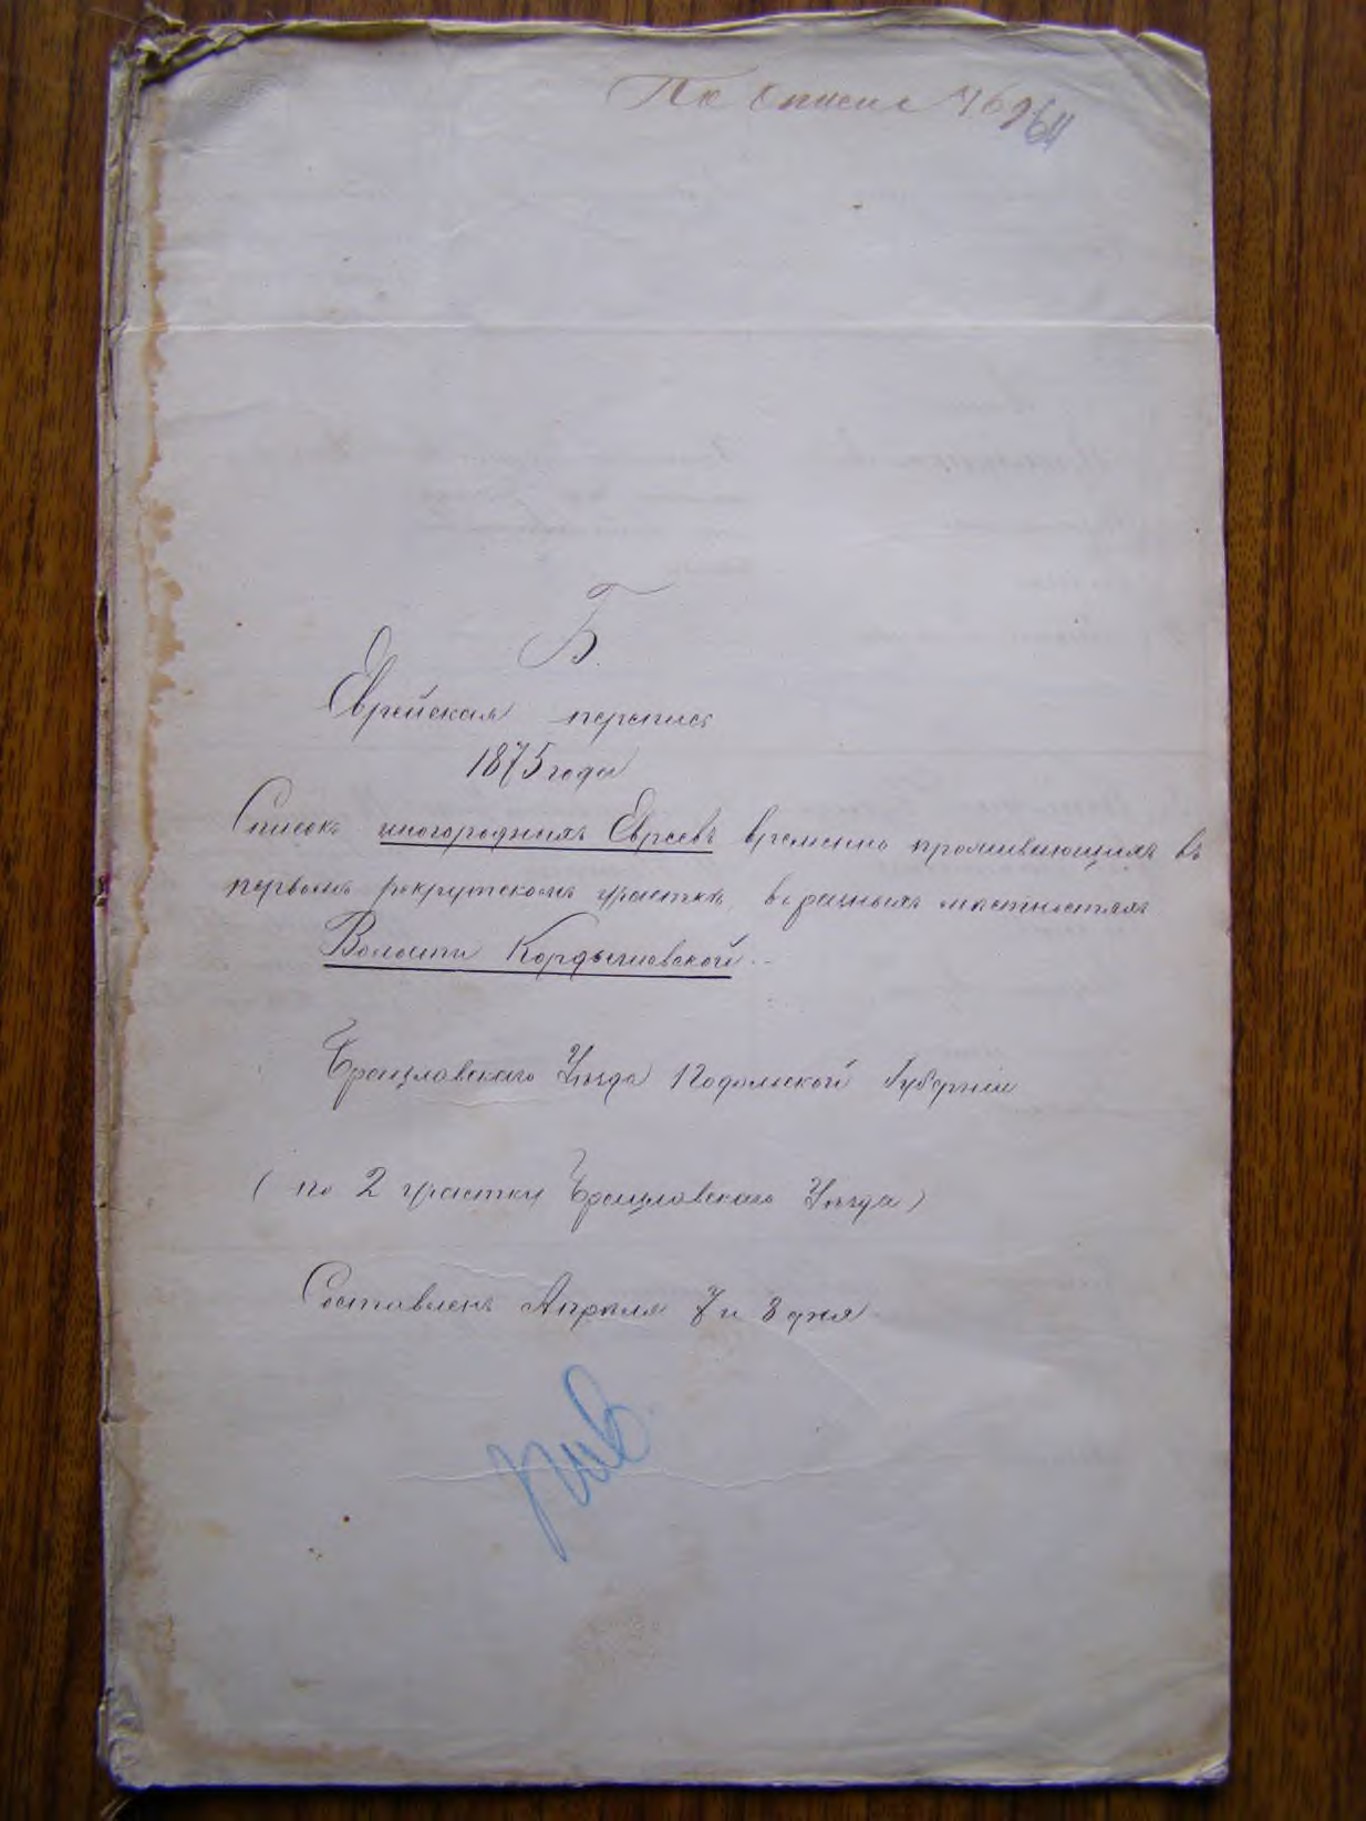 По описи №69
64
Б.
Еврейская перепись
1875 года
Списокъ иногороднихъ Евреевъ временно проживающихъ въ
первомъ рекрутскомъ участкѣ, въ разныхъ мѣстностяхъ
Волости Кордышовской.
Брацлавскаго Уѣзда Подольской Губерніи
(по 2 участку Брацлавскаго Уѣзда)
Составленъ Апрѣля 7 и 8 дня